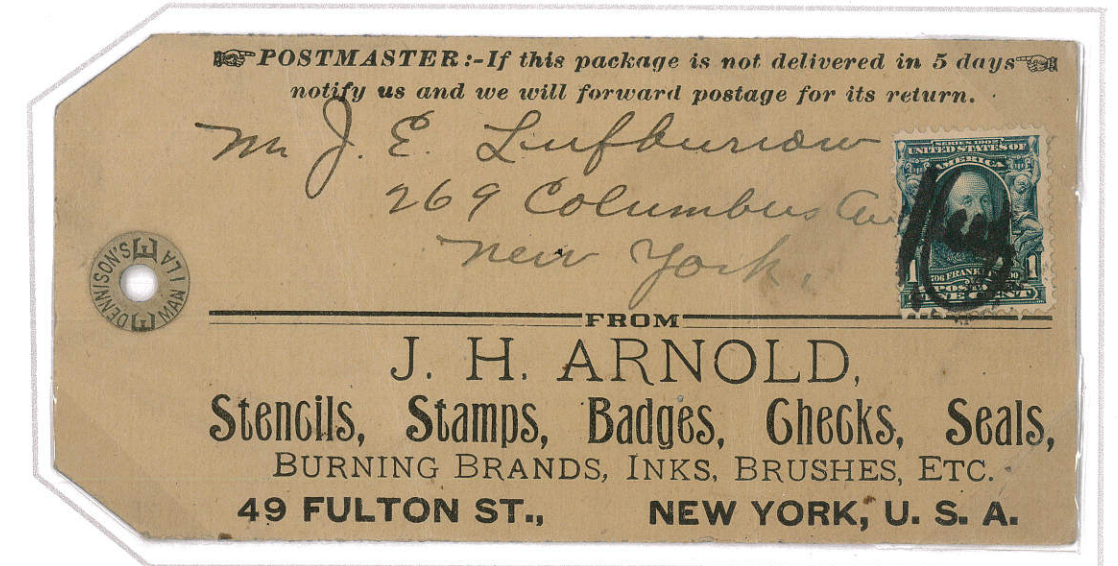 POSTMASTER:-If this package is not delivered in 5 days
notify us and we will forward postage for its return.
Mr J. E. Lufburrow
269 Columbus Av
New York.
SERIES 1902
UNITED STATES OF
AMERICA
1 FRANKLIN 1
POSTAGE
ONE CENT
DENNISON'S
MANILA
FROM
J. H. ARNOLD,
Stencils, Stamps, Badges, Checks, Seals,
BURNING BRANDS, INKS, BRUSHES, ETC.
49 FULTON ST., NEW YORK, U. S. A.